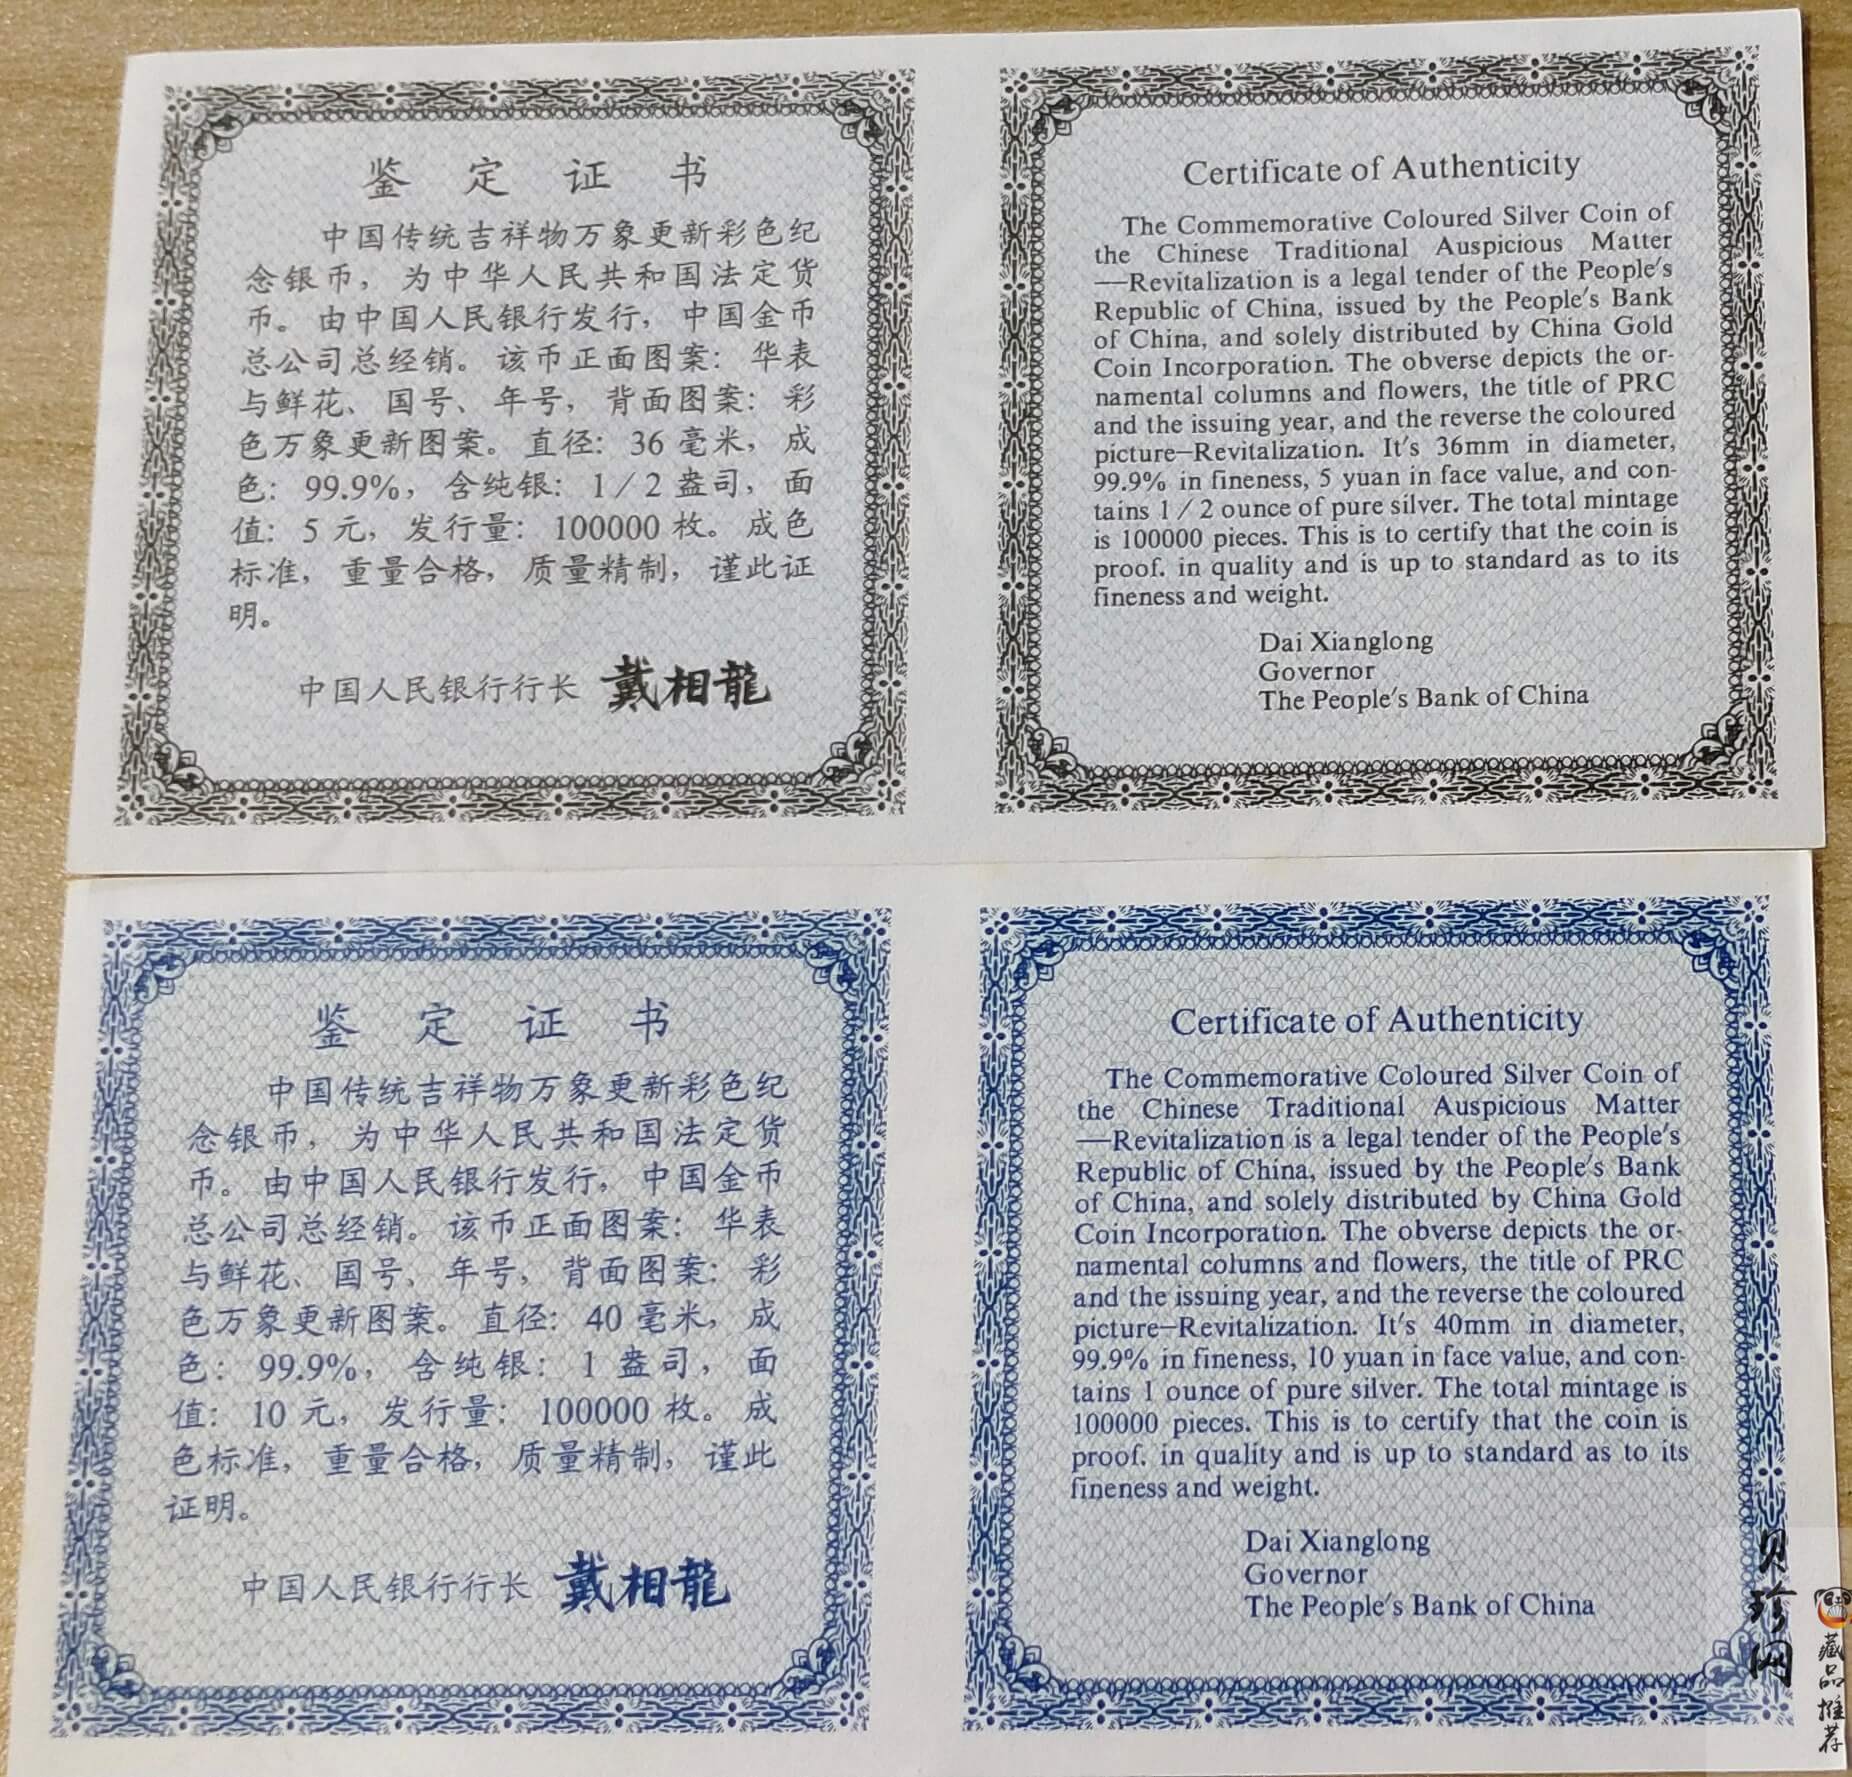 鉴定证书
中国传统吉祥物万象更新彩色纪
念银币，为中华人民共和国法定货
币。由中国人民银行发行，中国金币
总公司总经销。该币正面图案：华表
与鲜花、国号、年号，背面图案：彩
色万象更新图案。直径：36毫米，成
色：99.9%，含纯银：1/2盎司，面
值：5元，发行量：100000枚。成色
标准，重量合格，质量精制，谨此证
明。
中国人民银行行长 戴相龍
Certificate of Authenticity
The Commemorative Coloured Silver Coin of
the Chinese Traditional Auspicious Matter
—Revitalization is a legal tender of the People's
Republic of China, issued by the People's Bank
of China, and solely distributed by China Gold
Coin Incorporation. The obverse depicts the or-
namental columns and flowers, the title of PRC
and the issuing year, and the reverse the coloured
picture—Revitalization. It's 36mm in diameter,
99.9% in fineness, 5 yuan in face value, and con-
tains 1/2 ounce of pure silver. The total mintage
is 100000 pieces. This is to certify that the coin is
proof. in quality and is up to standard as to its
fineness and weight.
Dai Xianglong
Governor
The People's Bank of China
鉴定证书
中国传统吉祥物万象更新彩色纪
念银币，为中华人民共和国法定货
币。由中国人民银行发行，中国金币
总公司总经销。该币正面图案：华表
与鲜花、国号、年号，背面图案：彩
色万象更新图案。直径：40毫米，成
色：99.9%，含纯银：1盎司，面
值：10元，发行量：100000枚。成
色标准，重量合格，质量精制，谨此
证明。
中国人民银行行长 戴相龍
Certificate of Authenticity
The Commemorative Coloured Silver Coin of
the Chinese Traditional Auspicious Matter
—Revitalization is a legal tender of the People's
Republic of China, issued by the People's Bank
of China, and solely distributed by China Gold
Coin Incorporation. The obverse depicts the or-
namental columns and flowers, the title of PRC
and the issuing year, and the reverse the coloured
picture—Revitalization. It's 40mm in diameter,
99.9% in fineness, 10 yuan in face value, and con-
tains 1 ounce of pure silver. The total mintage is
100000 pieces. This is to certify that the coin is
proof. in quality and is up to standard as to its
fineness and weight.
Dai Xianglong
Governor
The People's Bank of China
贝珍网
藏品推荐